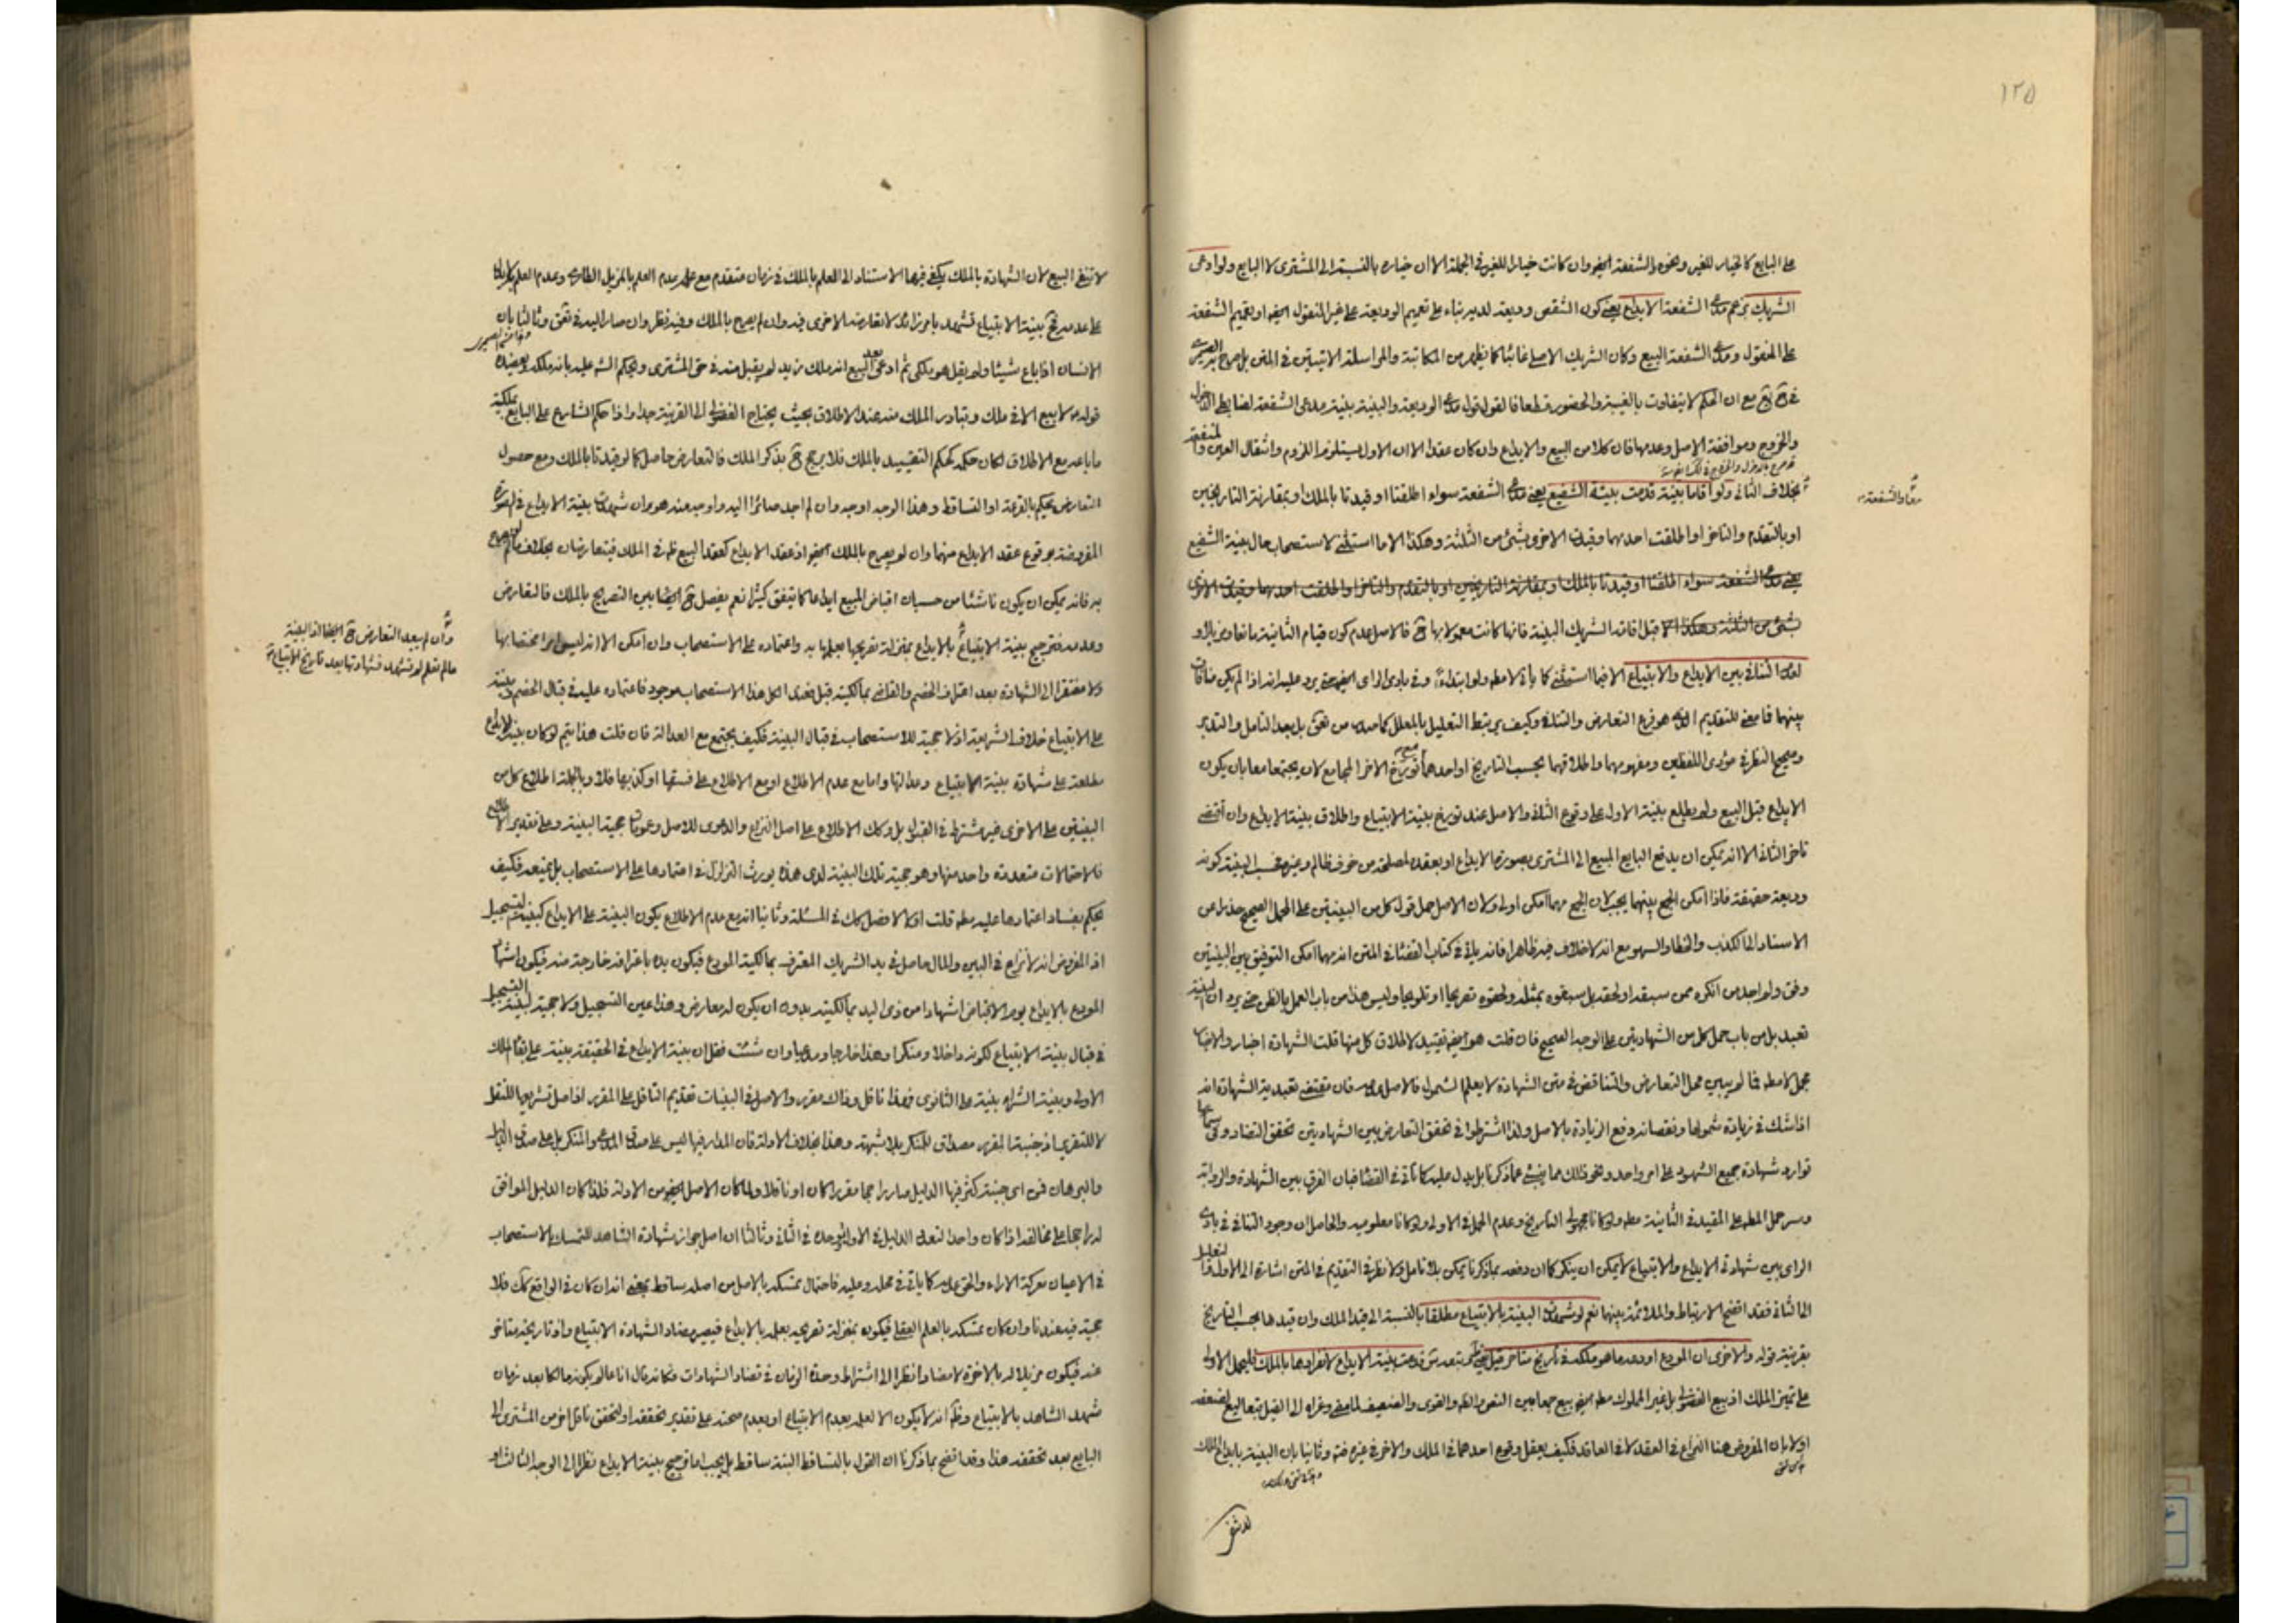 ١٢٥
على البايع كالخيار للغير ونحوه الشفعة ايضا وان كانت خيارا للغير في الجملة الا ان خياره بالنسبة الى المشترى لا البايع ولو ادعى
الشريك بزعم مدعى الشفعة الايداع يعنى كون الشقص وديعة لديه بناء على تعميم الوديعة على غير المنقول ايضا او تعميم الشفعة
على المنقول ومدعى الشفعة البيع وكان الشريك الاصلى غائبا كما يظهر من المكاتبة والمراسلة الاتيتين في المتن بل صرح به
مع ان الحكم لا يتفاوت بالغيبة والحضور قطعا فالقول قول مدعى الوديعة والبينة بينة مدعى الشفعة لضابطى الدخول
والخروج وموافقة الاصل وعدمها فان كلا من البيع والايداع وان كان عقدا الا ان الاول يستلزم اللزوم وانتقال العين والمنفعة
بخلاف الثاني ولو اقاما بينة قدمت بينة الشفيع يعنى مدعى الشفعة سواء اطلقتا او قيدتا بالملك او بمقارنة التاريخين
او بالتقدم والتاخر او اطلقت احديهما وقيدت الاخرى بشئ من الثلثة وهكذا الا ما استثنى لاستصحاب حال بينة الشفيع
يعنى مدعى الشفعة سواء اطلقتا او قيدتا بالملك او بمقارنة التاريخين او بالتقدم والتاخر او اطلقت احديهما وقيدت الاخرى
بشئ من الثلثة وهكذا قبل اقامة الشريك البينة فانها كانت معمولا بها فالاصل عدم كون قيام الثانية مانعا ومزيلا و
التنافي بين الايداع والابتياع الا فيما استثنى كما ياتي لا مطلقا ولو ابتداء وفي بادى الراى ايضا حتى يرد عليه انه اذا لم يكن منافات
بينهما فما معنى للتقديم الذى هو فرع التعارض والتنافي وكيف يرتبط التعليل بالمعلل كما صدر من بل بعد التامل والتدبر
وصحيح النظر في مؤدى اللفظين ومفهومهما واطلاقهما بحسب التاريخ او احدهما مع تورخ الاخر المجامع لان يجتمعا معا بان يكون
الايداع قبل البيع ولم يطلع بينة الاول على وقوع الثاني والاصل عند تورخ بينة الابتياع واطلاق بينة الايداع وان اقتضى
تاخر الثاني الا انه يمكن ان يدفع البايع المبيع الى المشترى بصورة الايداع او بعقده لمصلحة من خوف ظالم وغيره فحسب البينة كونه
وديعة حقيقة فاذا امكن الجمع بينهما يجب لان الجمع مهما امكن اولى ولان الاصل حمل قول كل من البينتين على المحمل الصحيح حذرا عن
الاسناد الى الكذب والخطا والسهو مع انه لا خلاف فيه ظاهرا فانه ياتي في كتاب القضاء في المتن انه مهما امكن التوفيق بين البينتين
وفق ولم اجد من انكره ممن سبقه او لحقه بل سبقوه بمثله ولحقوه تصريحا او تلويحا وليس هذا من باب العمل بالظن حتى يرد ان البينة
تعبد بل من باب حمل كل من الشهادتين على الوجه الصحيح فان قلت هو ايضا تقييد لاطلاق كل منهما قلت الشهادة اخبار والاخبار
مجمل لا مطلق فما لم يبين محمل التعارض والتناقض في متن الشهادة لا يعلم الشمول فالاصل عدمه فان مقتضى تعبدية الشهادة انه
اذا شك في زيادة شمولها ونقصانه دفع الزيادة بالاصل ولذا اشترطوا في تحقق التعارض بين الشهادتين تحقق التضاد وفى
توارد شهادة جميع الشهود على امر واحد ونحو ذلك مما ينبئ عما ذكرنا بل يدل عليه كما تاتي في القضاء فبان الفرق بين الشهادة والرواية
وسر حمل المطلق على المقيد في الثانية مطلقا ولو كانا مجهولى التاريخ وعدم الحمل في الاولى ولو كانا معلوميه والحاصل ان وجود التنافي في بادى
الراى بين شهادة الايداع والابتياع لا يمكن ان ينكر كما ان دفعه بما ذكرنا يمكن بلا تامل ولا نظر في التقديم في المتن اشارة الى الاول والتعليل
الى الثاني فقد اتضح الارتباط والملائمة بينهما نعم لو شهدت البينة بالابتياع مطلقا بالنسبة الى قيد الملك وان قيدها بحسب التاريخ
بقرينة قوله والاخرى ان المودع اودعه ما هو ملكه في تاريخ متاخر قيل قدمت بينة الايداع لانفرادها بالملك
على تميز الملك اذ بيع الفضولى بل غير المملوك مطلقا ايضا بيع
اولا بان المفروض هنا النزاع في العقد لا في العاقد فكيف يعقل وقوع احدهما في الملك والاخر في غيره وثانيا بان البينة بايداع الملك
معا والشفعة
لا تنفى البيع لان الشهادة بالملك يكفى فيها الاستناد الى العلم بالملك في زمان متقدم مع عدم العلم بالمزيل الطارى وعدم العلم
بينة الابتياع تشهد بامر زائد لا تعارضه الاخرى فيه وان لم يصرح بالملك وفيه نظر وان صار اليه في وثالثا بان
الانسان اذا باع شيئا ولم يقل هو ملكى ثم ادعى بعد البيع انه ملك زيد لم يقبل منه في حق المشترى ويحكم الشرع عليه بانه ملكه
قوله لا بيع الا في ملك وتبادر الملك منه عند الاطلاق بحيث يحتاج الفضولى الى القرينة جدا واذا حكم الشارع على البايع بملكية
ما باعه مع الاطلاق لكان حكمه كحكم التقييد بالملك فلا يرجح بذكر الملك فالتعارض حاصل كما لو قيدتا بالملك ومع حصول
التعارض يحكم بالقرعة او التساقط وهذا الوجه اوجه وان لم اجد صائرا اليه واوجه منه هو ان شهدت بينة الايداع في الصورة
المفروضة بوقوع عقد الايداع منهما وان لم يصرح بالملك ايضا اذ عقد الايداع كعقد البيع ظاهر في الملك فيتعارضان بخلاف ما لم
به فانه يمكن ان يكون ناشئا من حسبان اقباض المبيع ايداعا كما يتفق كثيرا نعم يفصل ايضا بين التصريح بالملك فالتعارض
وعدمه فترجيح بينة الابتياع بالايداع بمنزلة تصريحها بعلمها به واعتماده على الاستصحاب وان امكن الا انه ليس امرا مختصا بها
ولا مفتقرا الى الشهادة بعد اعتراف الخصم والقاضى بمالكيته قبل فغدى الكل هذا الاستصحاب موجود فاعتماده عليه في قبال الخصم وبينة
على الابتياع خلاف الشريعة اذ لا حجية للاستصحاب في قبال البينة فكيف يجتمع مع العدالة فان قلت هذا يتم لو كان بينة الايداع
مطلعة على شهادة بينة الابتياع وعدالتها واما مع عدم الاطلاع او مع الاطلاع على فسقها او كذبها فلا وبالجملة اطلاع كل من
البينتين على الاخرى غير مشترط في القبول بل وكك الاطلاع على اصل النزاع والدعوى للاصل وعمومات حجية البينة وعلى تقدير الاطلاع
فالاحتمالات متعددة واحد منها وهو حجية تلك البينة لدى هذه يورث التزلزل في اعتمادها على الاستصحاب بل يمنعه فكيف
يحكم بفساد اعتمادها عليه مطلقا قلت اولا لا فصل كك في المسئلة وثانيا انه مع عدم الاطلاع يكون البينة على الايداع كبينة التسجيل
اذ المفروض انه لا نزاع في البين والمال حاصل في يد الشريك المعترف بمالكية المودع فيكون يده باعترافه خارجة منه فيكون اشهاد
المودع بالايداع يوم الاقباض اشهادا من ذى اليد بمالكيته بدون ان يكون له معارض وهذا عين التسجيل ولا حجية لبينة التسجيل
في قبال بينة الابتياع لكونه داخلا ومنكرا وهذا خارجا ومدعيا وان شئت فقل ان بينة الايداع في الحقيقة بينة على بقاء الملك
الاولى وبينة الشراء بينة على الثانوى فهذا ناقل وذاك مقرر والاصل في البينات تقديم الناقل على المقرر اذ اصل تشريعها للنقل
لا للتقرير اذ جنبة المقرر مصداق المنكر بلا شبهة وهذا بخلاف الادلة فان المدار فيها ليس على صدق المدعى والمنكر بل على صدق الدليل
والبرهان ففى اى جنبة كثر فيها الدليل صار راجحا مقررا كان او ناقلا ولما كان الاصل ايضا من الادلة فلذا كان الدليل الموافق
له راجحا على مخالفه اذا كان واحدا لتعدد الدليل في الاول وتوحده في الثاني وثالثا ان اصل جواز شهادة الشاهد للتمسك بالاستصحاب
في الاعيان معركة الاراء والحق عدمه كما ياتي في محله وعليه فاحتمال تمسكه بالاصل من اصله ساقط بمعنى انه ان كان في الواقع كك فلا
حجية فيه عندنا وان كان تمسكه بالعلم الفعلى فيكون بمنزلة تصريحه بعلمه بالايداع فيصير مضادا لشهادة الابتياع واذ تاريخه متاخر
عنه فيكون مزيلا له بالاخرة لا مضادا نظرا الى اشتراط وحدة الزمان في تضاد الشهادات فكانه قال انا عالم بكونه مالكا بعد زمان
شهد الشاهد بالابتياع وظاهر انه لا يكون الا لعلمه بعدم الابتياع او بعدم صحته على تقدير تحققه او لتحقق ناقل اخر من المشترى الى
البايع بعد تحققه هذا وقد اتضح بما ذكرنا ان القول بالتساقط البتة ساقط بل يجب اما ترجيح بينة الايداع نظرا الى الوجه الثالث او
وان لم يبعد التعارض ايضا اذ البينة
ما لم تعلم لم تشهد فشهادتها بعد تاريخ الابتياع